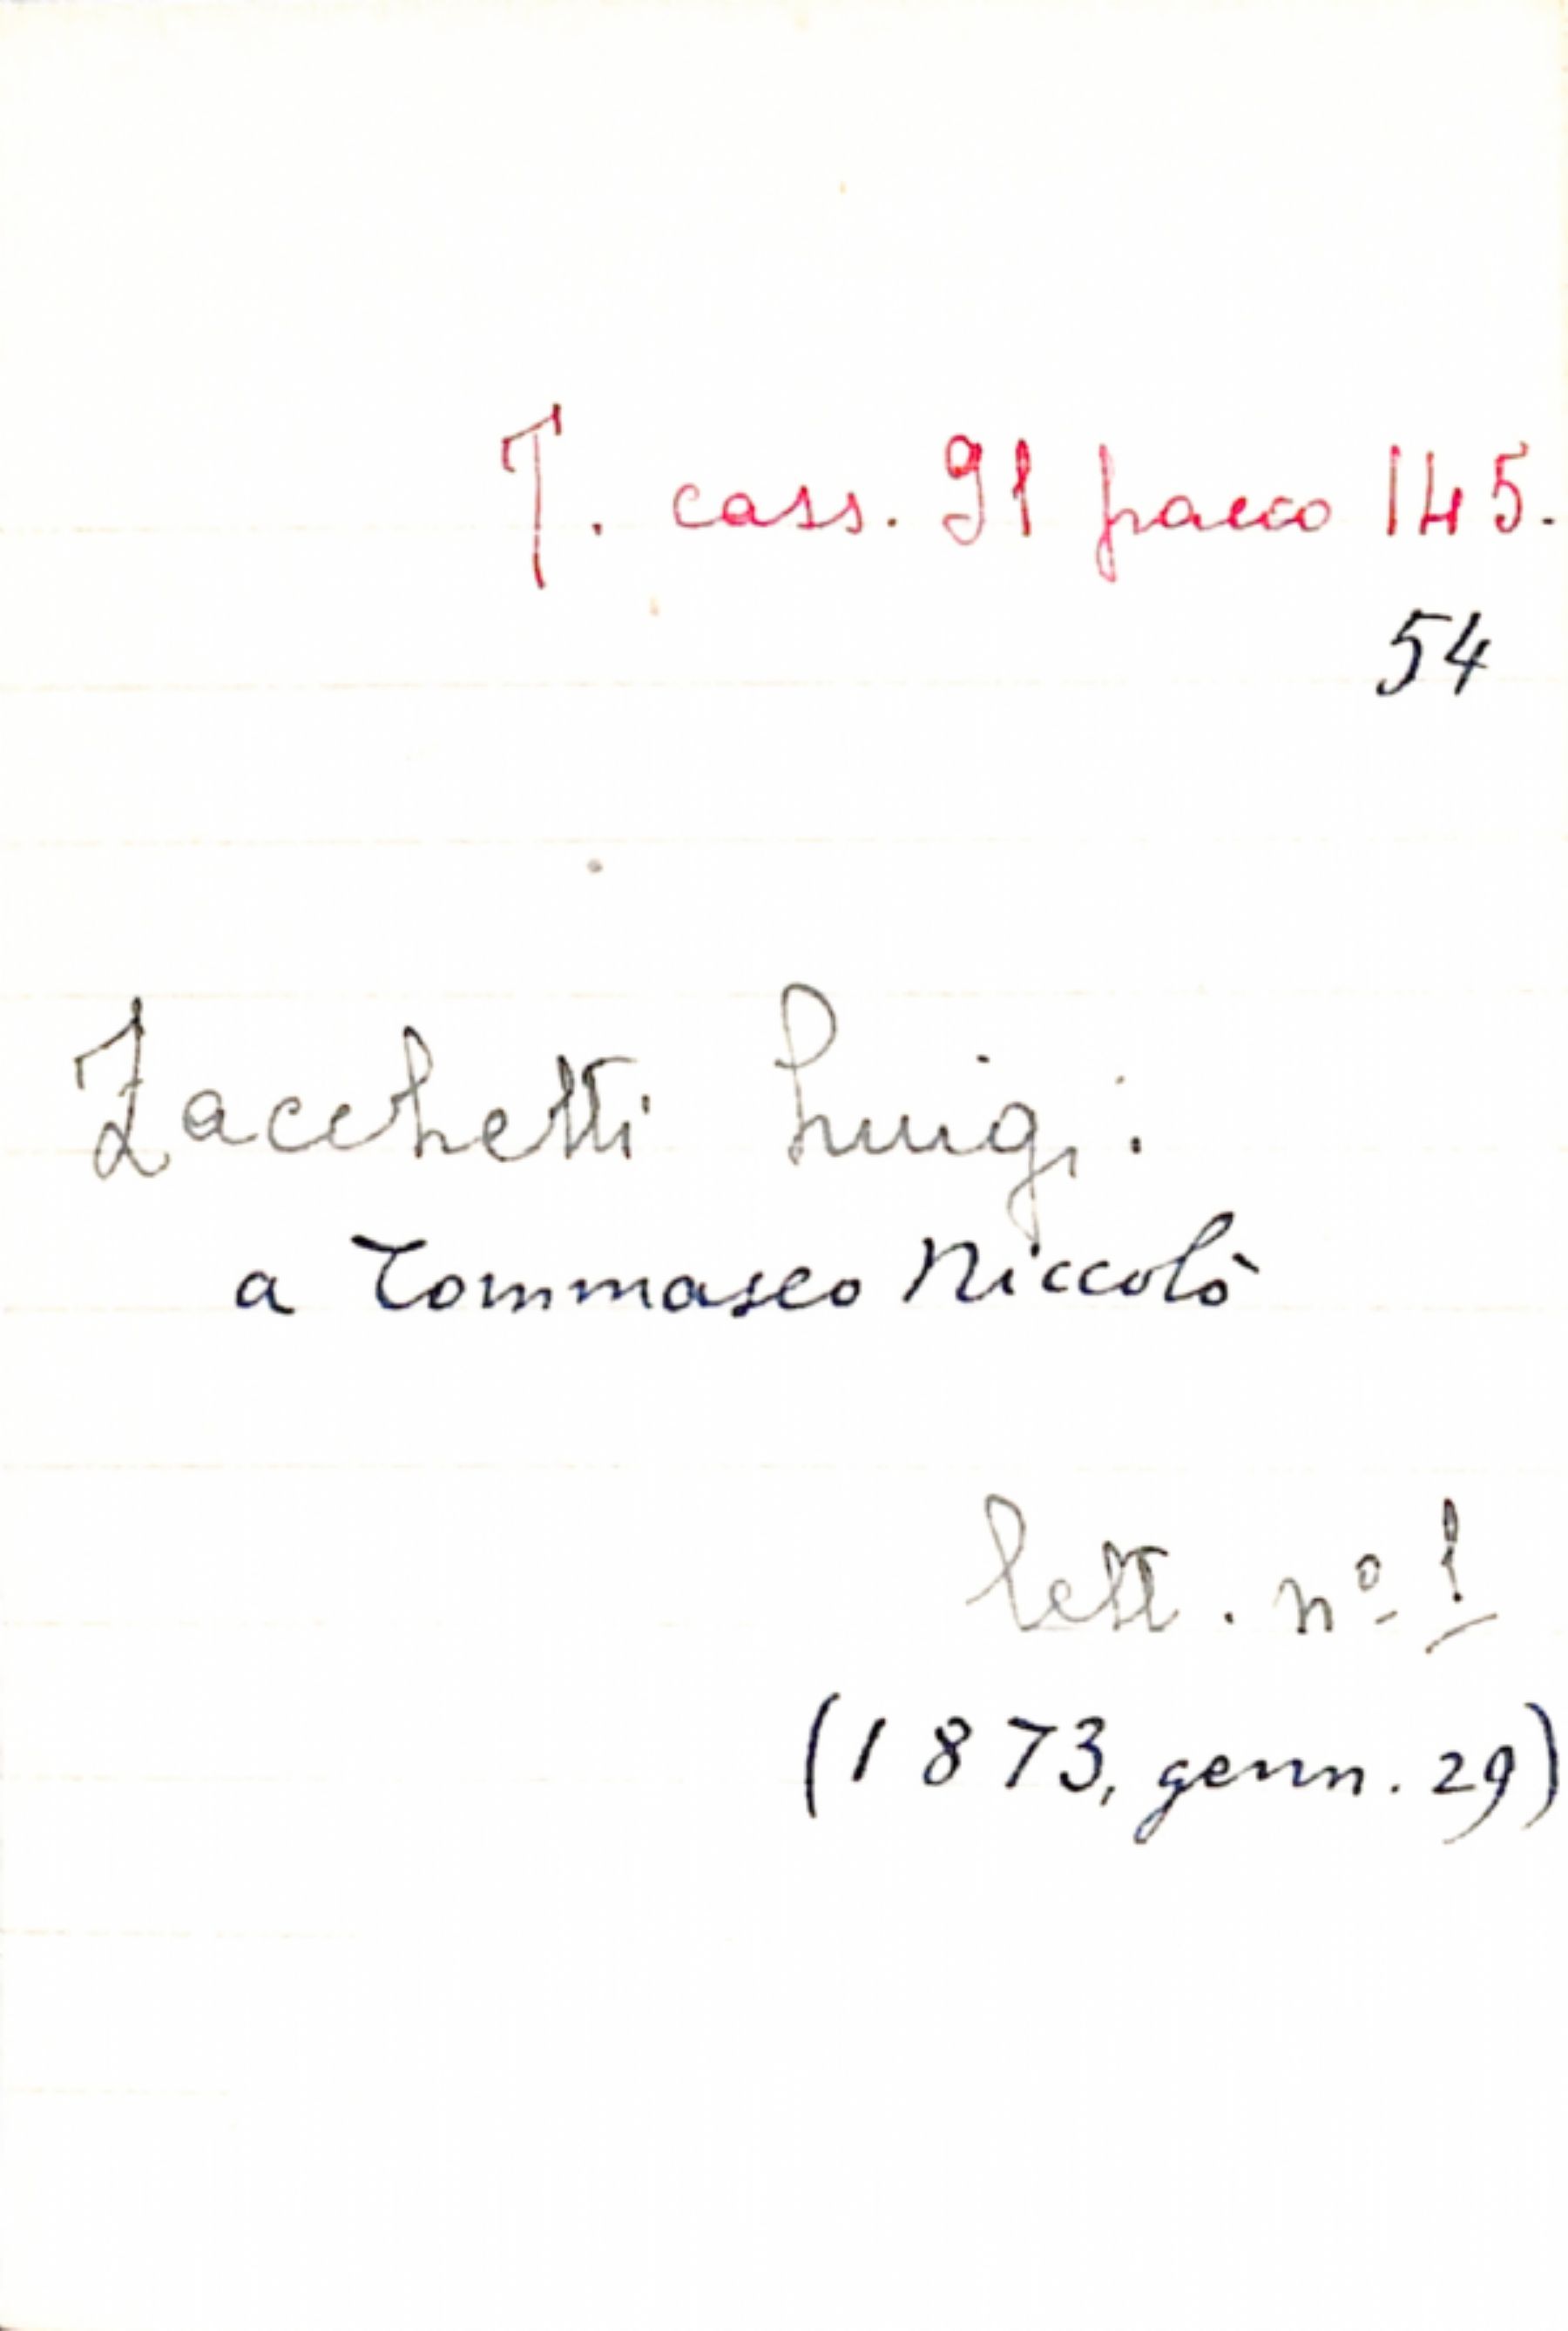 T. cass. 91 pacco 145.
54
Zacchetti Luigi.
a Tommaseo Niccolò
lett. nº 1
(1873, genn. 29)